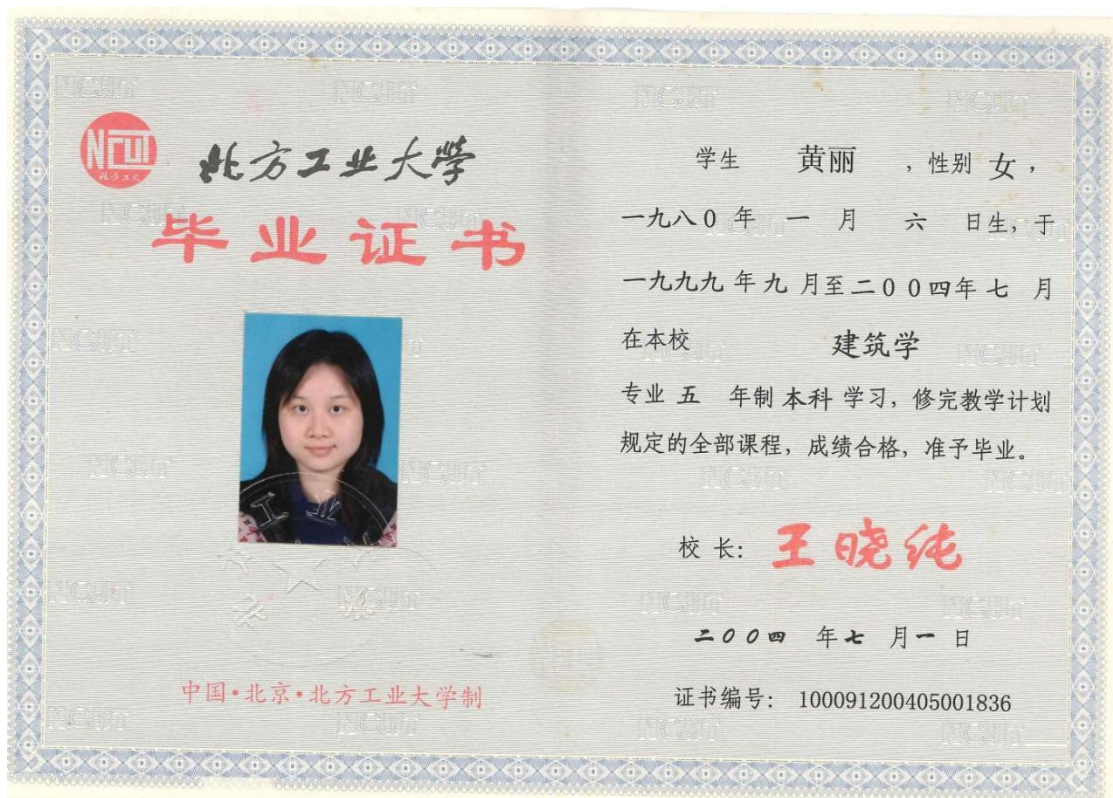 NCUT
北方工大
北方工业大學
毕业证书
中国·北京·北方工业大学制
学生 黄丽 ,性别 女,
一九八0 年 一 月 六 日生,于
一九九九 年 九 月至二00四年 七 月
在本校 建筑学
专业 五 年制 本科 学习,修完教学计划
规定的全部课程,成绩合格,准予毕业。
校 长: 王晓纯
二00四 年 七 月 一 日
证书编号: 100091200405001836